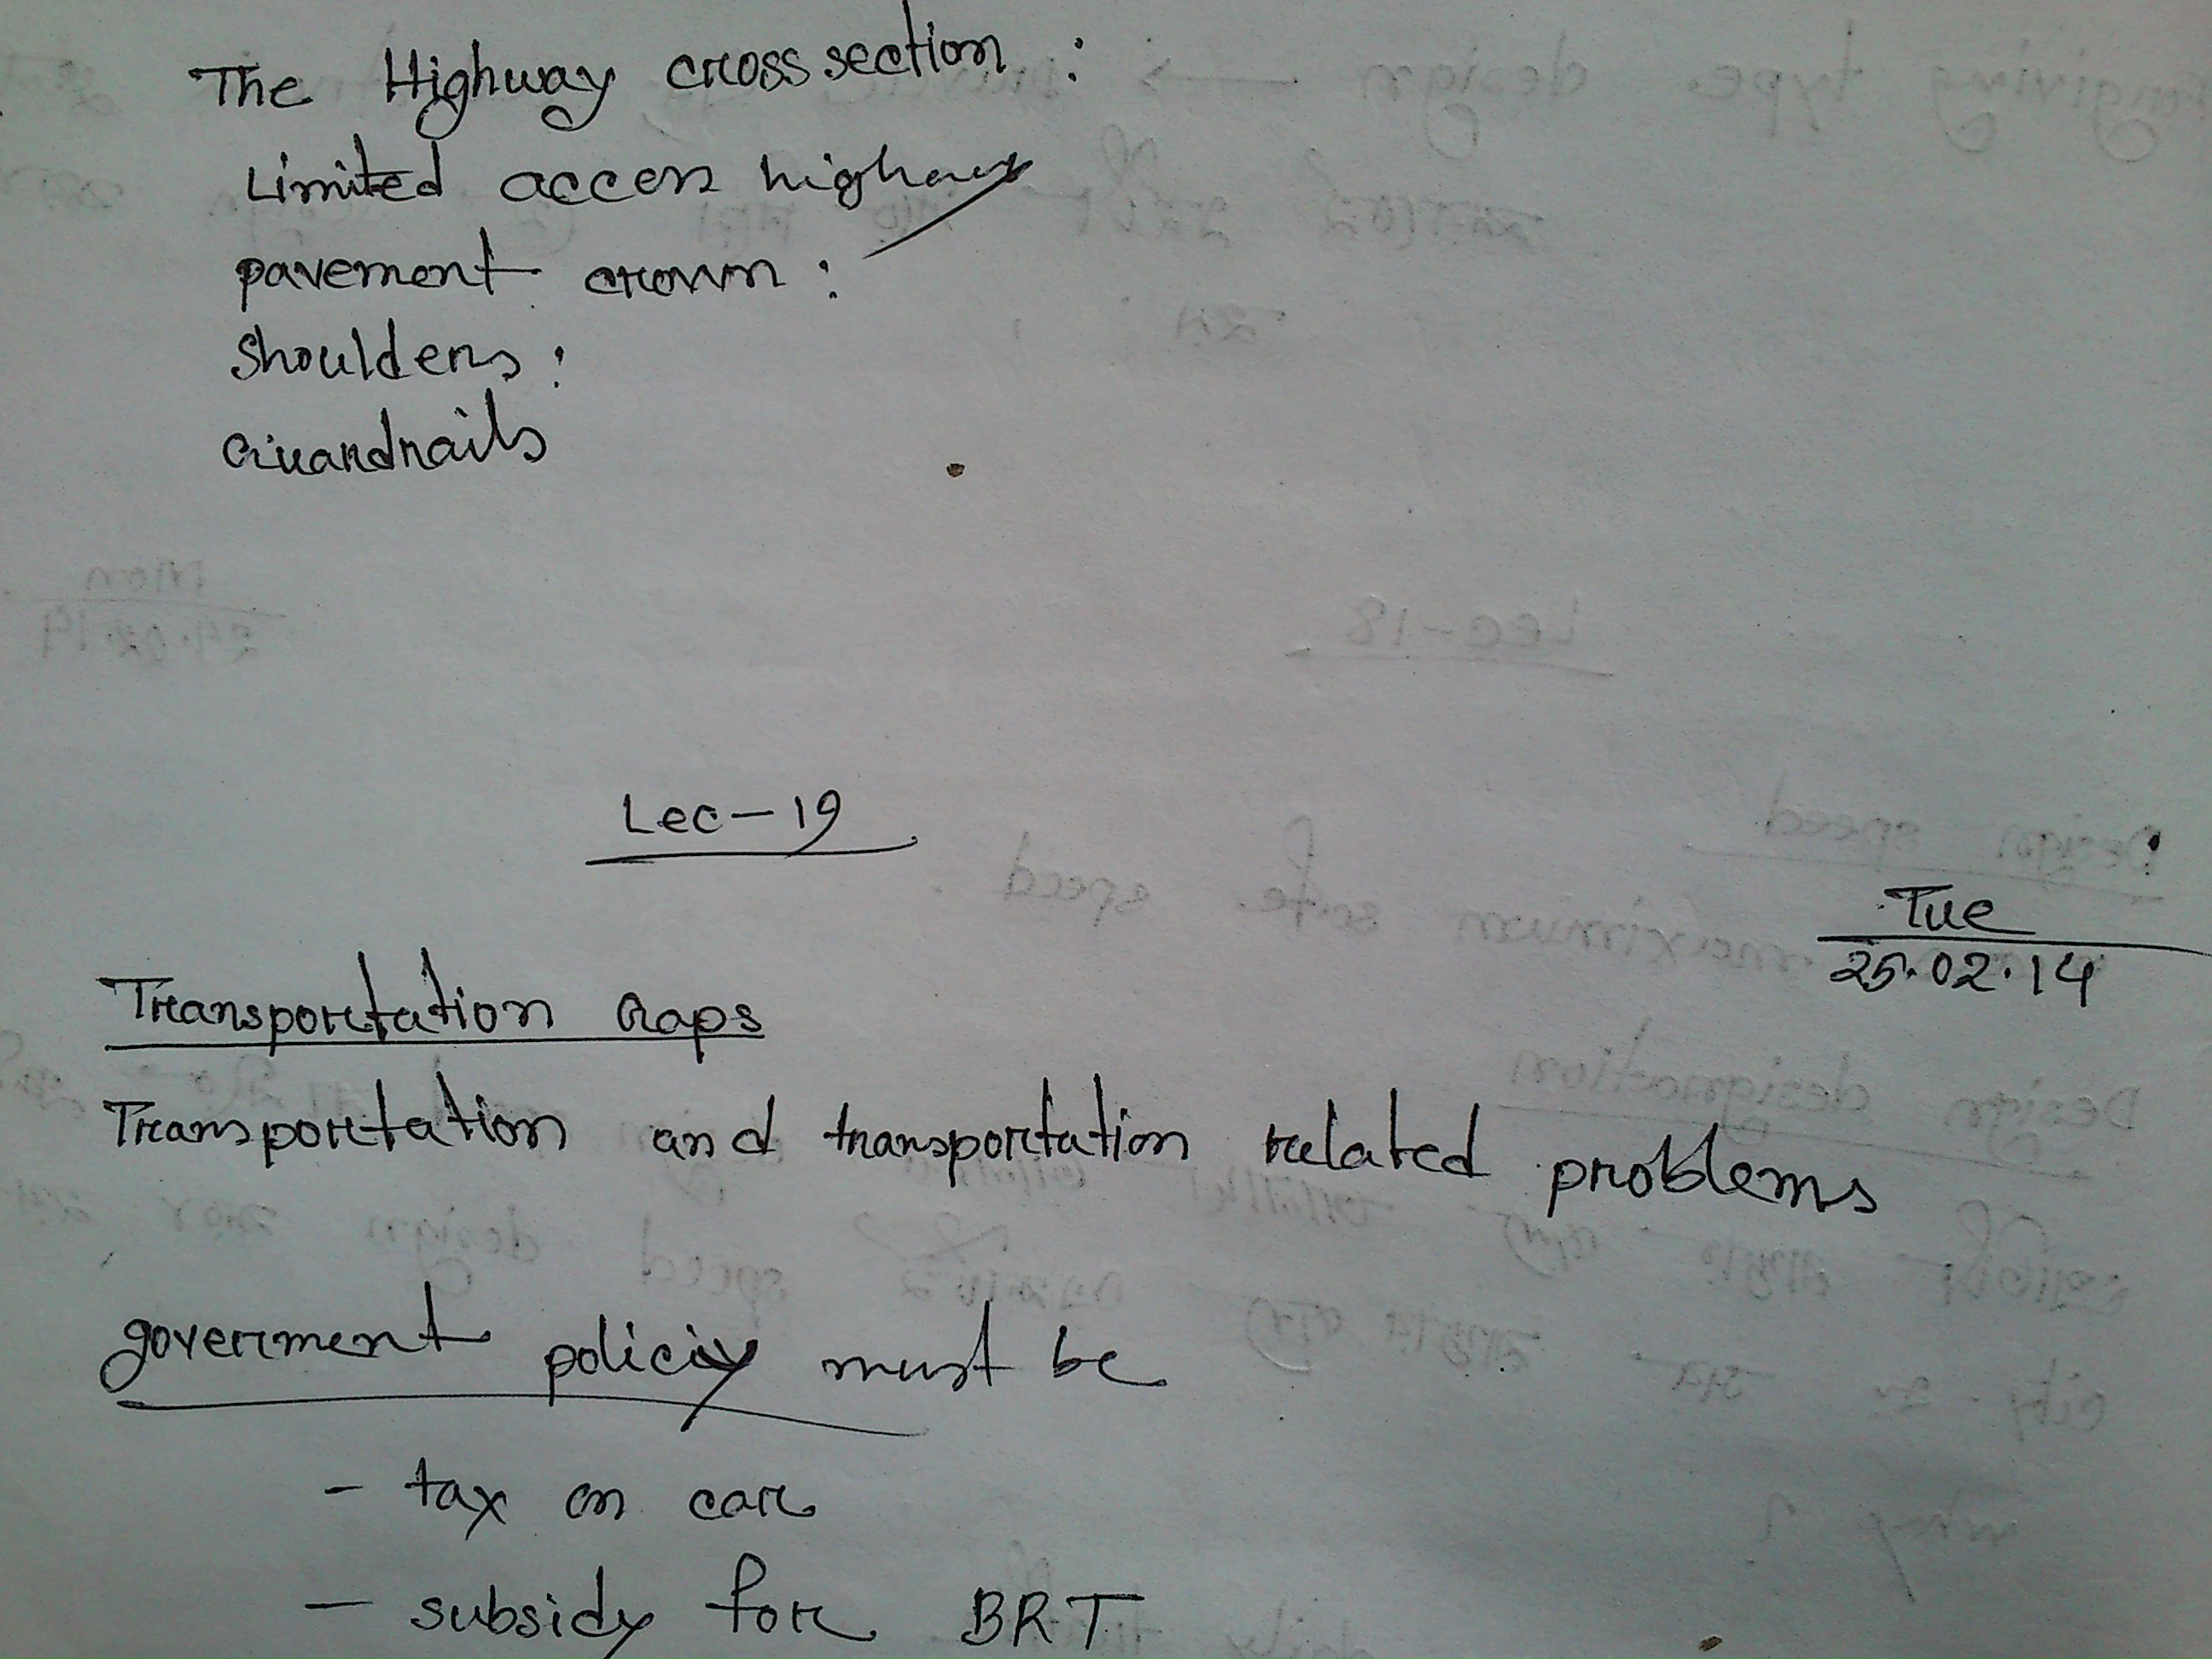 The Highway cross section :
Limited access highway
pavement crown :
Shoulders :
Guardrails
Lec-19
Tue
25.02.14
Transportation Gaps
Transportation and transportation related problems
government policiy must be
- tax on car
- subsidy for BRT